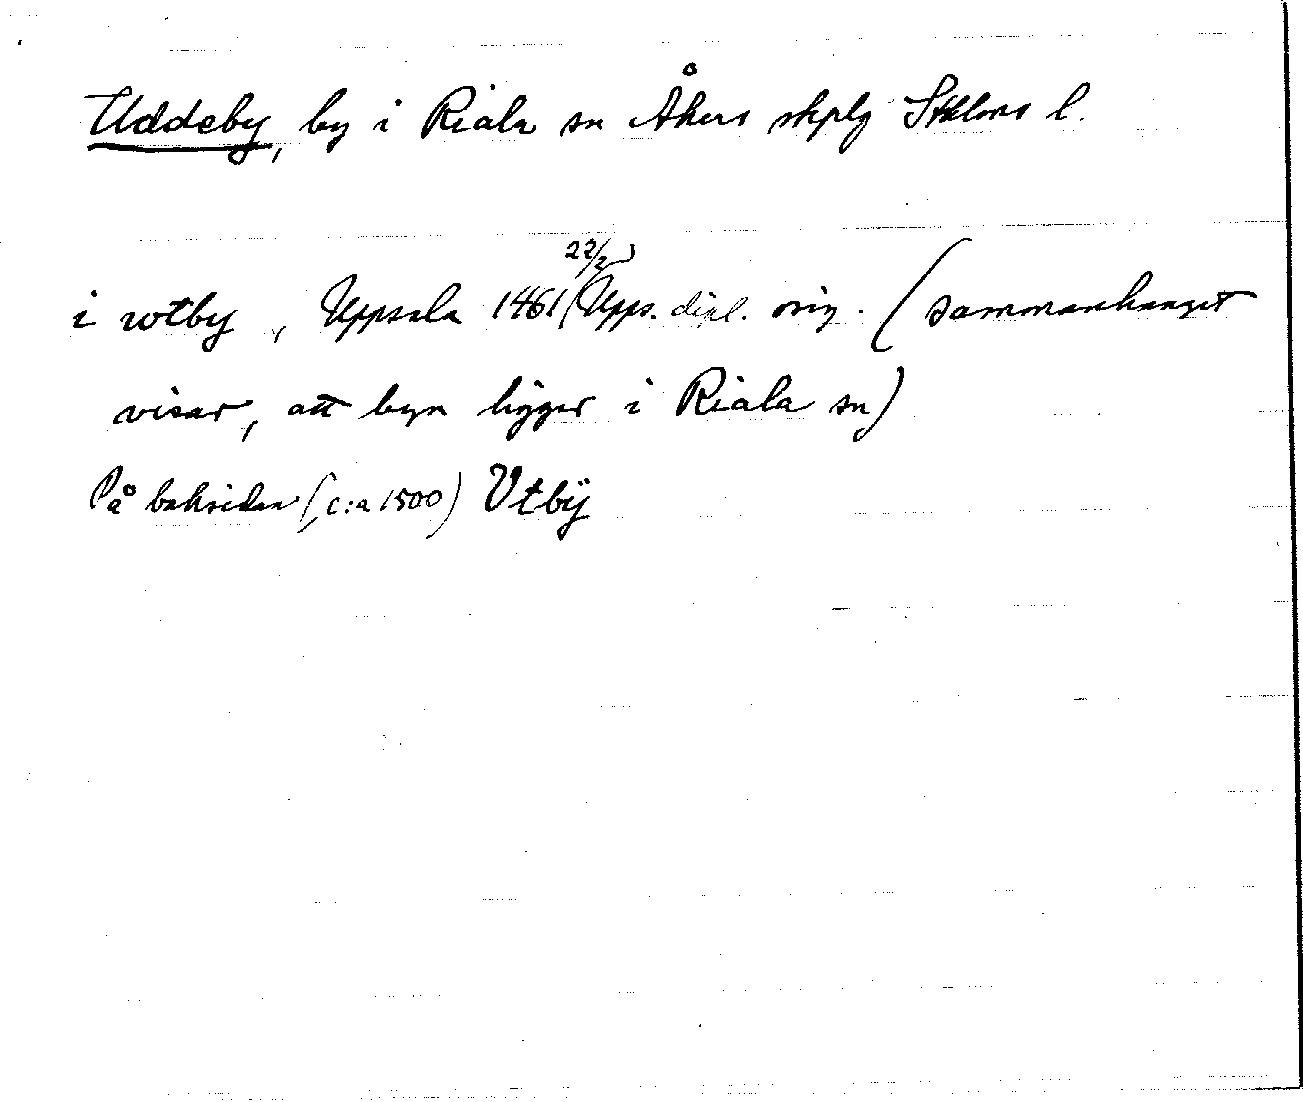 Uddeby, by i Riala sn Åkers skplg Sthlms l.
i wtby, Uppsala 1461 22/2 (Upps. dipl. orig. (sammanhanget
visar, att byn ligger i Riala sn)
På baksidan (c:a 1500) Vtbÿ